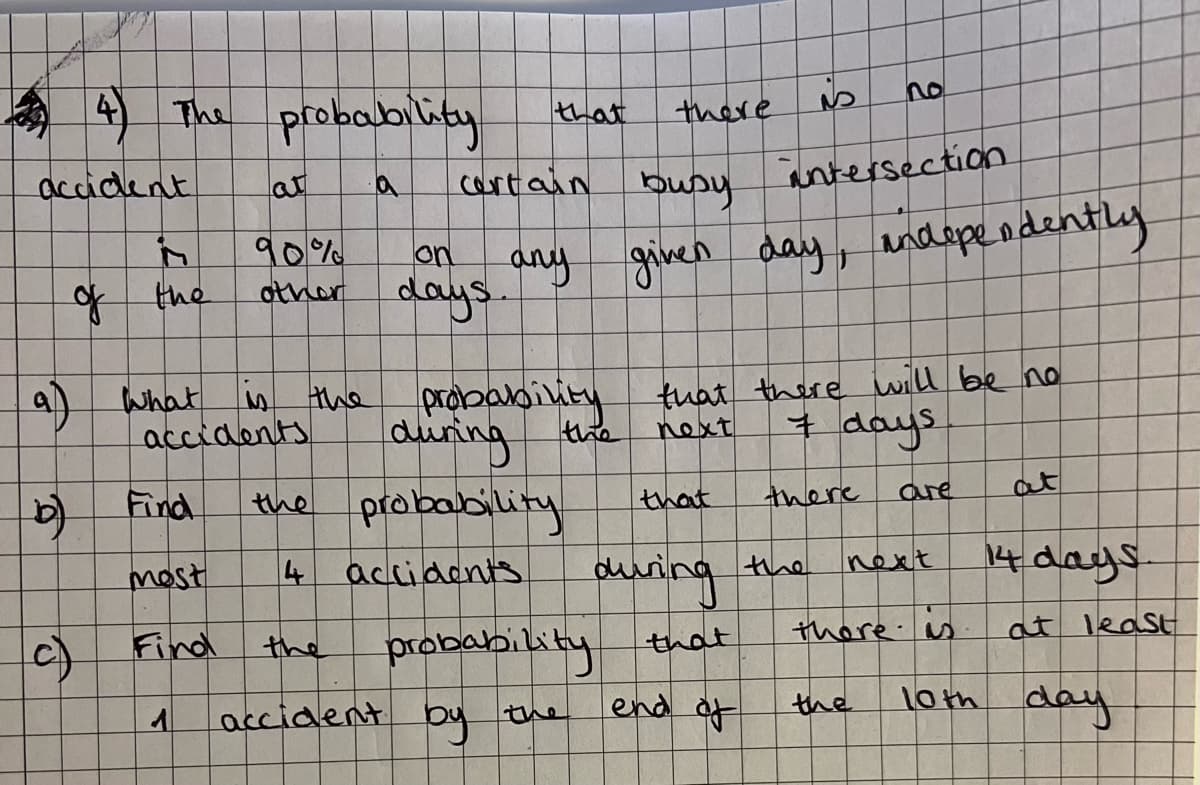 4) The probability that there is no
accident at a certain busy intersection
is 90% on any given day, independently
of the other days.
a) What is the probability that there will be no
accidents during the next 7 days.
b) Find the probability that there are at
most 4 accidents during the next 14 days.
c) Find the probability that there is at least
1 accident by the end of the 10th day